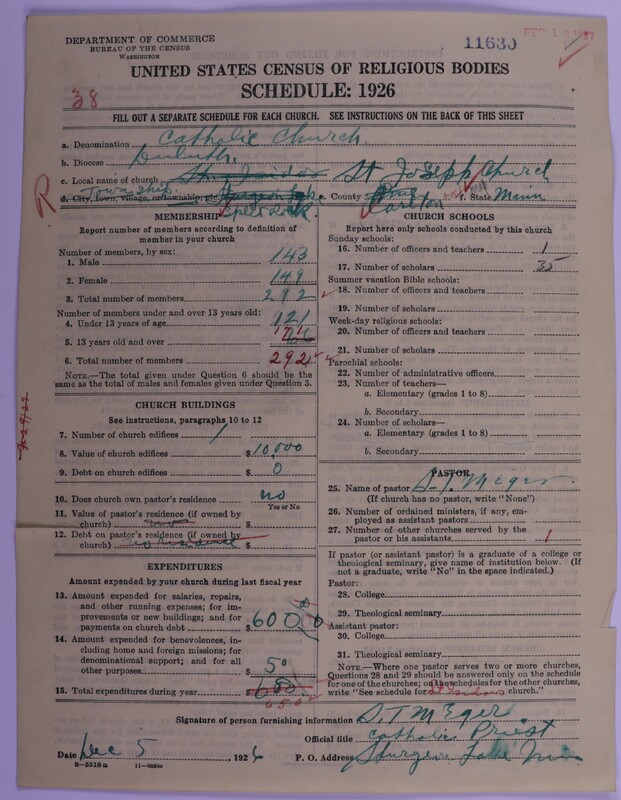 DEPARTMENT OF COMMERCE
BUREAU OF THE CENSUS
WASHINGTON
11630
FEB 1 1927
UNITED STATES CENSUS OF RELIGIOUS BODIES
38
SCHEDULE: 1926
FILL OUT A SEPARATE SCHEDULE FOR EACH CHURCH. SEE INSTRUCTIONS ON THE BACK OF THIS SHEET
a. Denomination Catholic Church.
b. Diocese Duluth.
c. Local name of church St Joseph Church
Township
d. City, town, village, or township, etc. e. County Carlton f. State Minn
MEMBERSHIP
Report number of members according to definition of
member in your church
Number of members, by sex:
1. Male 143
2. Female 149
3. Total number of members 292
Number of members under and over 13 years old:
4. Under 13 years of age 121
5. 13 years old and over 171
6. Total number of members 292
NOTE.—The total given under Question 6 should be the
same as the total of males and females given under Question 3.
CHURCH BUILDINGS
See instructions, paragraphs 10 to 12
7. Number of church edifices 1
8. Value of church edifices $10,000
9. Debt on church edifices $0
10. Does church own pastor's residence no
Yes or No
11. Value of pastor's residence (if owned by
church) no $
12. Debt on pastor's residence (if owned by
church) no residence $
EXPENDITURES
Amount expended by your church during last fiscal year
13. Amount expended for salaries, repairs,
and other running expenses; for im-
provements or new buildings; and for
payments on church debt $600
14. Amount expended for benevolences, in-
cluding home and foreign missions; for
denominational support; and for all
other purposes $50
15. Total expenditures during year $600
650
CHURCH SCHOOLS
Report here only schools conducted by this church
Sunday schools:
16. Number of officers and teachers 1
17. Number of scholars 35
Summer vacation Bible schools:
18. Number of officers and teachers
19. Number of scholars
Week-day religious schools:
20. Number of officers and teachers
21. Number of scholars
Parochial schools:
22. Number of administrative officers
23. Number of teachers—
a. Elementary (grades 1 to 8)
b. Secondary
24. Number of scholars—
a. Elementary (grades 1 to 8)
b. Secondary
PASTOR
25. Name of pastor
(If church has no pastor, write "None")
26. Number of ordained ministers, if any, em-
ployed as assistant pastors
27. Number of other churches served by the
pastor or his assistants 1
If pastor (or assistant pastor) is a graduate of a college or
theological seminary, give name of institution below. (If
not a graduate, write "No" in the space indicated.)
Pastor:
28. College
29. Theological seminary
Assistant pastor:
30. College
31. Theological seminary
NOTE.—Where one pastor serves two or more churches,
Questions 28 and 29 should be answered only on the schedule
for one of the churches; on the schedules for the other churches,
write "See schedule for St Isidors church."
Signature of person furnishing information
Official title Catholic Priest
Date Dec 5 1926 P. O. Address Sturgeon Lake Minn
8-5518a 11-9234a